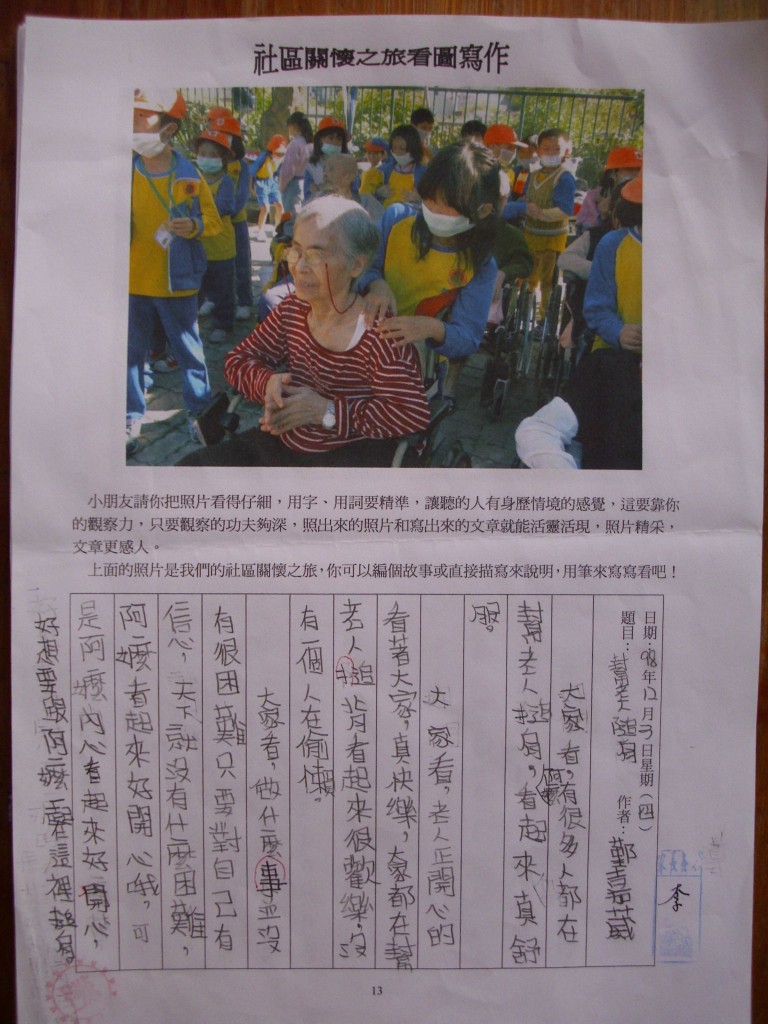 社區關懷之旅看圖寫作
小朋友請你把照片看得仔細，用字、用詞要精準，讓聽的人有身歷情境的感覺，這要靠你
的觀察力，只要觀察的功夫夠深，照出來的照片和寫出來的文章就能活靈活現，照片精采，
文章更感人。
上面的照片是我們的社區關懷之旅，你可以編個故事或直接描寫來說明，用筆來寫寫看吧！
日期：98年12月3日星期（四）
題目：幫老人隨身 作者：鄭嘉葳
大家看，有很多人都在
幫老人搥身，阿嬤看起來真舒
服。
大家看，老人正開心的
看著大家，真快樂，大家都在幫
老人搥背看起來很歡樂，沒
有一個人在偷懶。
大家看，做什麼事並沒
有很困難只要對自己有
信心，天下就沒有什麼困難，
阿嬤看起來好開心哦，可
是阿嬤內心看起來好開心，
好想要跟阿嬤在這裡搥身。
李
13